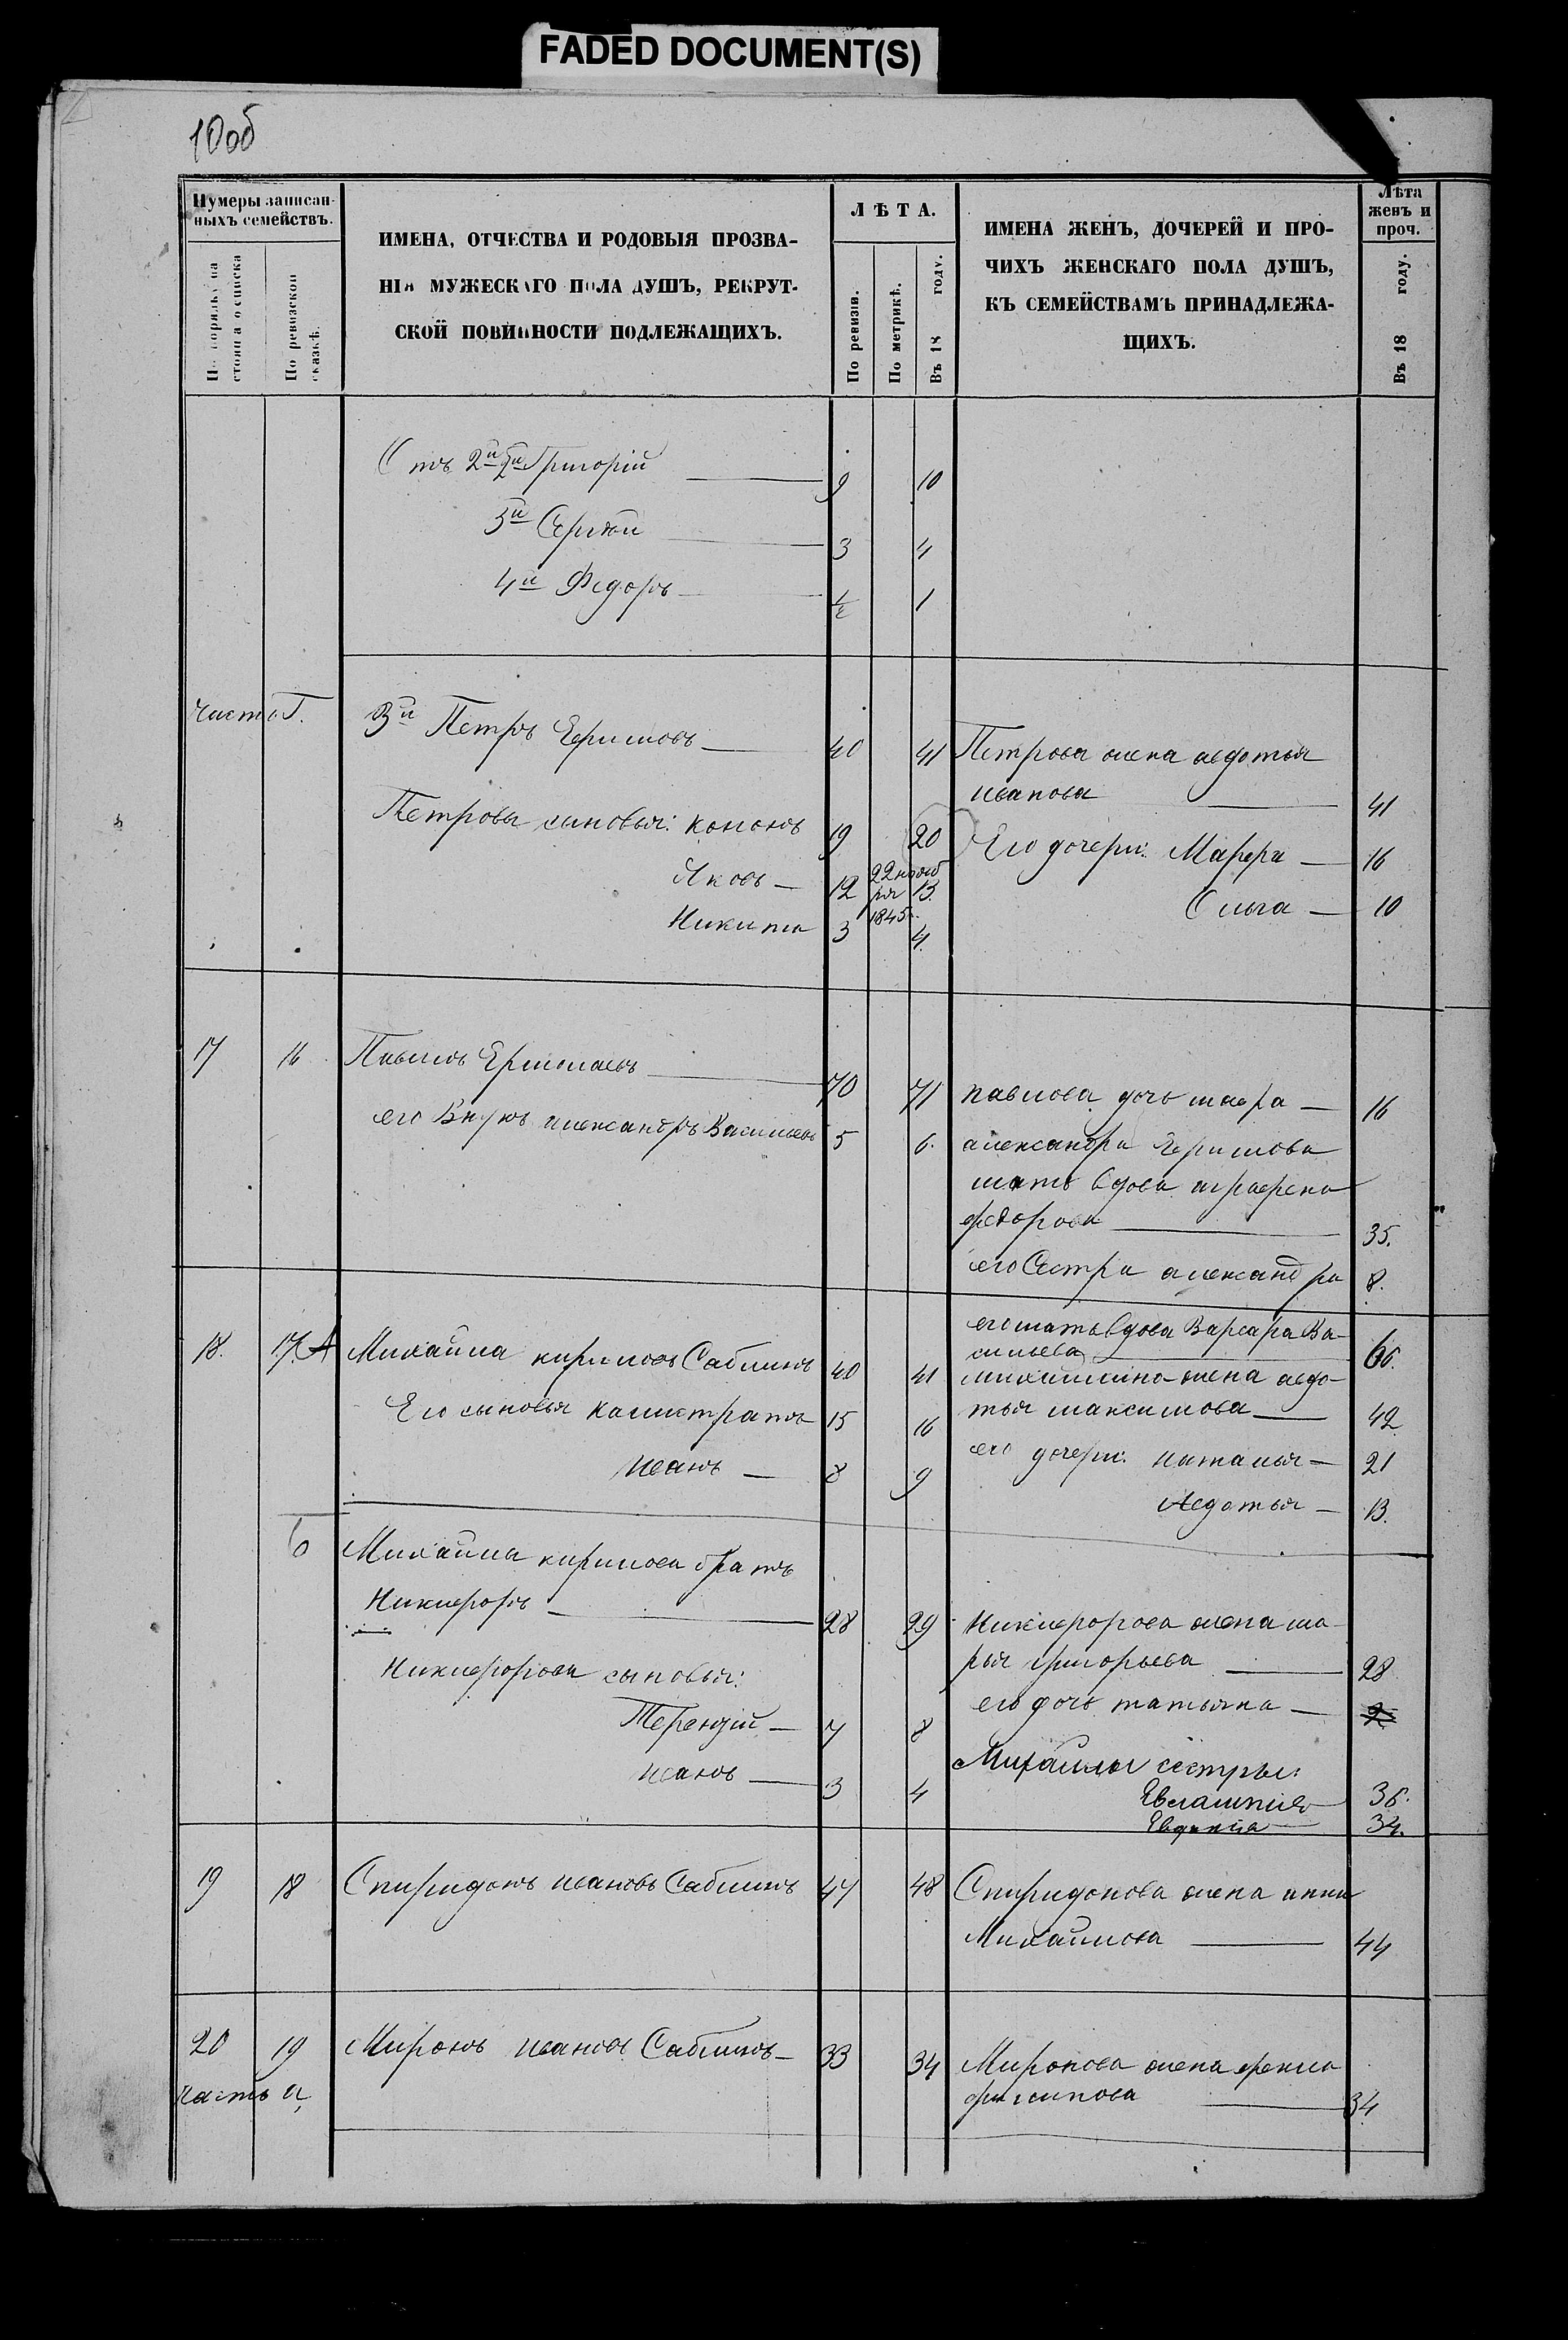 FADED DOCUMENT(S)
10об
Нумеры записан-
ныхъ семействъ.
По порядку на
стоящаго списка
По ревизской
сказкѣ.
ИМЕНА, ОТЧЕСТВА И РОДОВЫЯ ПРОЗВА-
НІЯ МУЖЕСКАГО ПОЛА ДУШЪ, РЕКРУТ-
СКОЙ ПОВИННОСТИ ПОДЛЕЖАЩИХЪ.
ЛѢТА.
По ревизіи.
По метрикѣ.
Въ 18 году.
ИМЕНА ЖЕНЪ, ДОЧЕРЕЙ И ПРО-
ЧИХЪ ЖЕНСКАГО ПОЛА ДУШЪ,
КЪ СЕМЕЙСТВАМЪ ПРИНАДЛЕЖА-
ЩИХЪ.
Лѣта
женъ и
проч.
Въ 18 году.
Отъ 2й 2й Григорій 9 10
3й Сергѣй 3 4
4й Федоръ ½ 1
часть Г. 3й Петръ Ефимовъ 40 41 Петрова жена авдотья
иванова 41
Петровы сыновья: кононъ 19 20 Его дочери: Марфа 16
Яковъ 12 22 нояб
ря 13. Ольга 10
Никита 3 1845 4.
17 16 Павелъ Ермолаевъ 70 71 павлова дочь мавра 16
его Внукъ александръ Васильевъ 5 6. александра
мать вдова аграфена
федорова 35.
его Сестра александра 8.
его мать вдова Варвара Ва-
сильева 66.
18. 17. А Михайла кириловъ Саблинъ 40 41 михайлина жена авдо-
тья максимова 42
Его сыновья калистратъ 15 16
его дочери: наталья 21
иванъ 8 9
Авдотья 13.
б Михайлы кирилова братъ
Никифоръ 28 29 Никифорова жена ма-
рья григорьева 28
Никифоровы сыновья:
его дочь татьяна 2
Терентій 7 8
Михайлы сестры:
иванъ 3 4
Евлампія 36.
Евдокія 34.
19 18 Спиридонъ ивановъ Саблинъ 47 48 Спиридонова жена анна
Михайлова 44
20 19 Миронъ ивановъ Саблинъ 33 34 Миронова жена фекла
филипова 34
часть а,